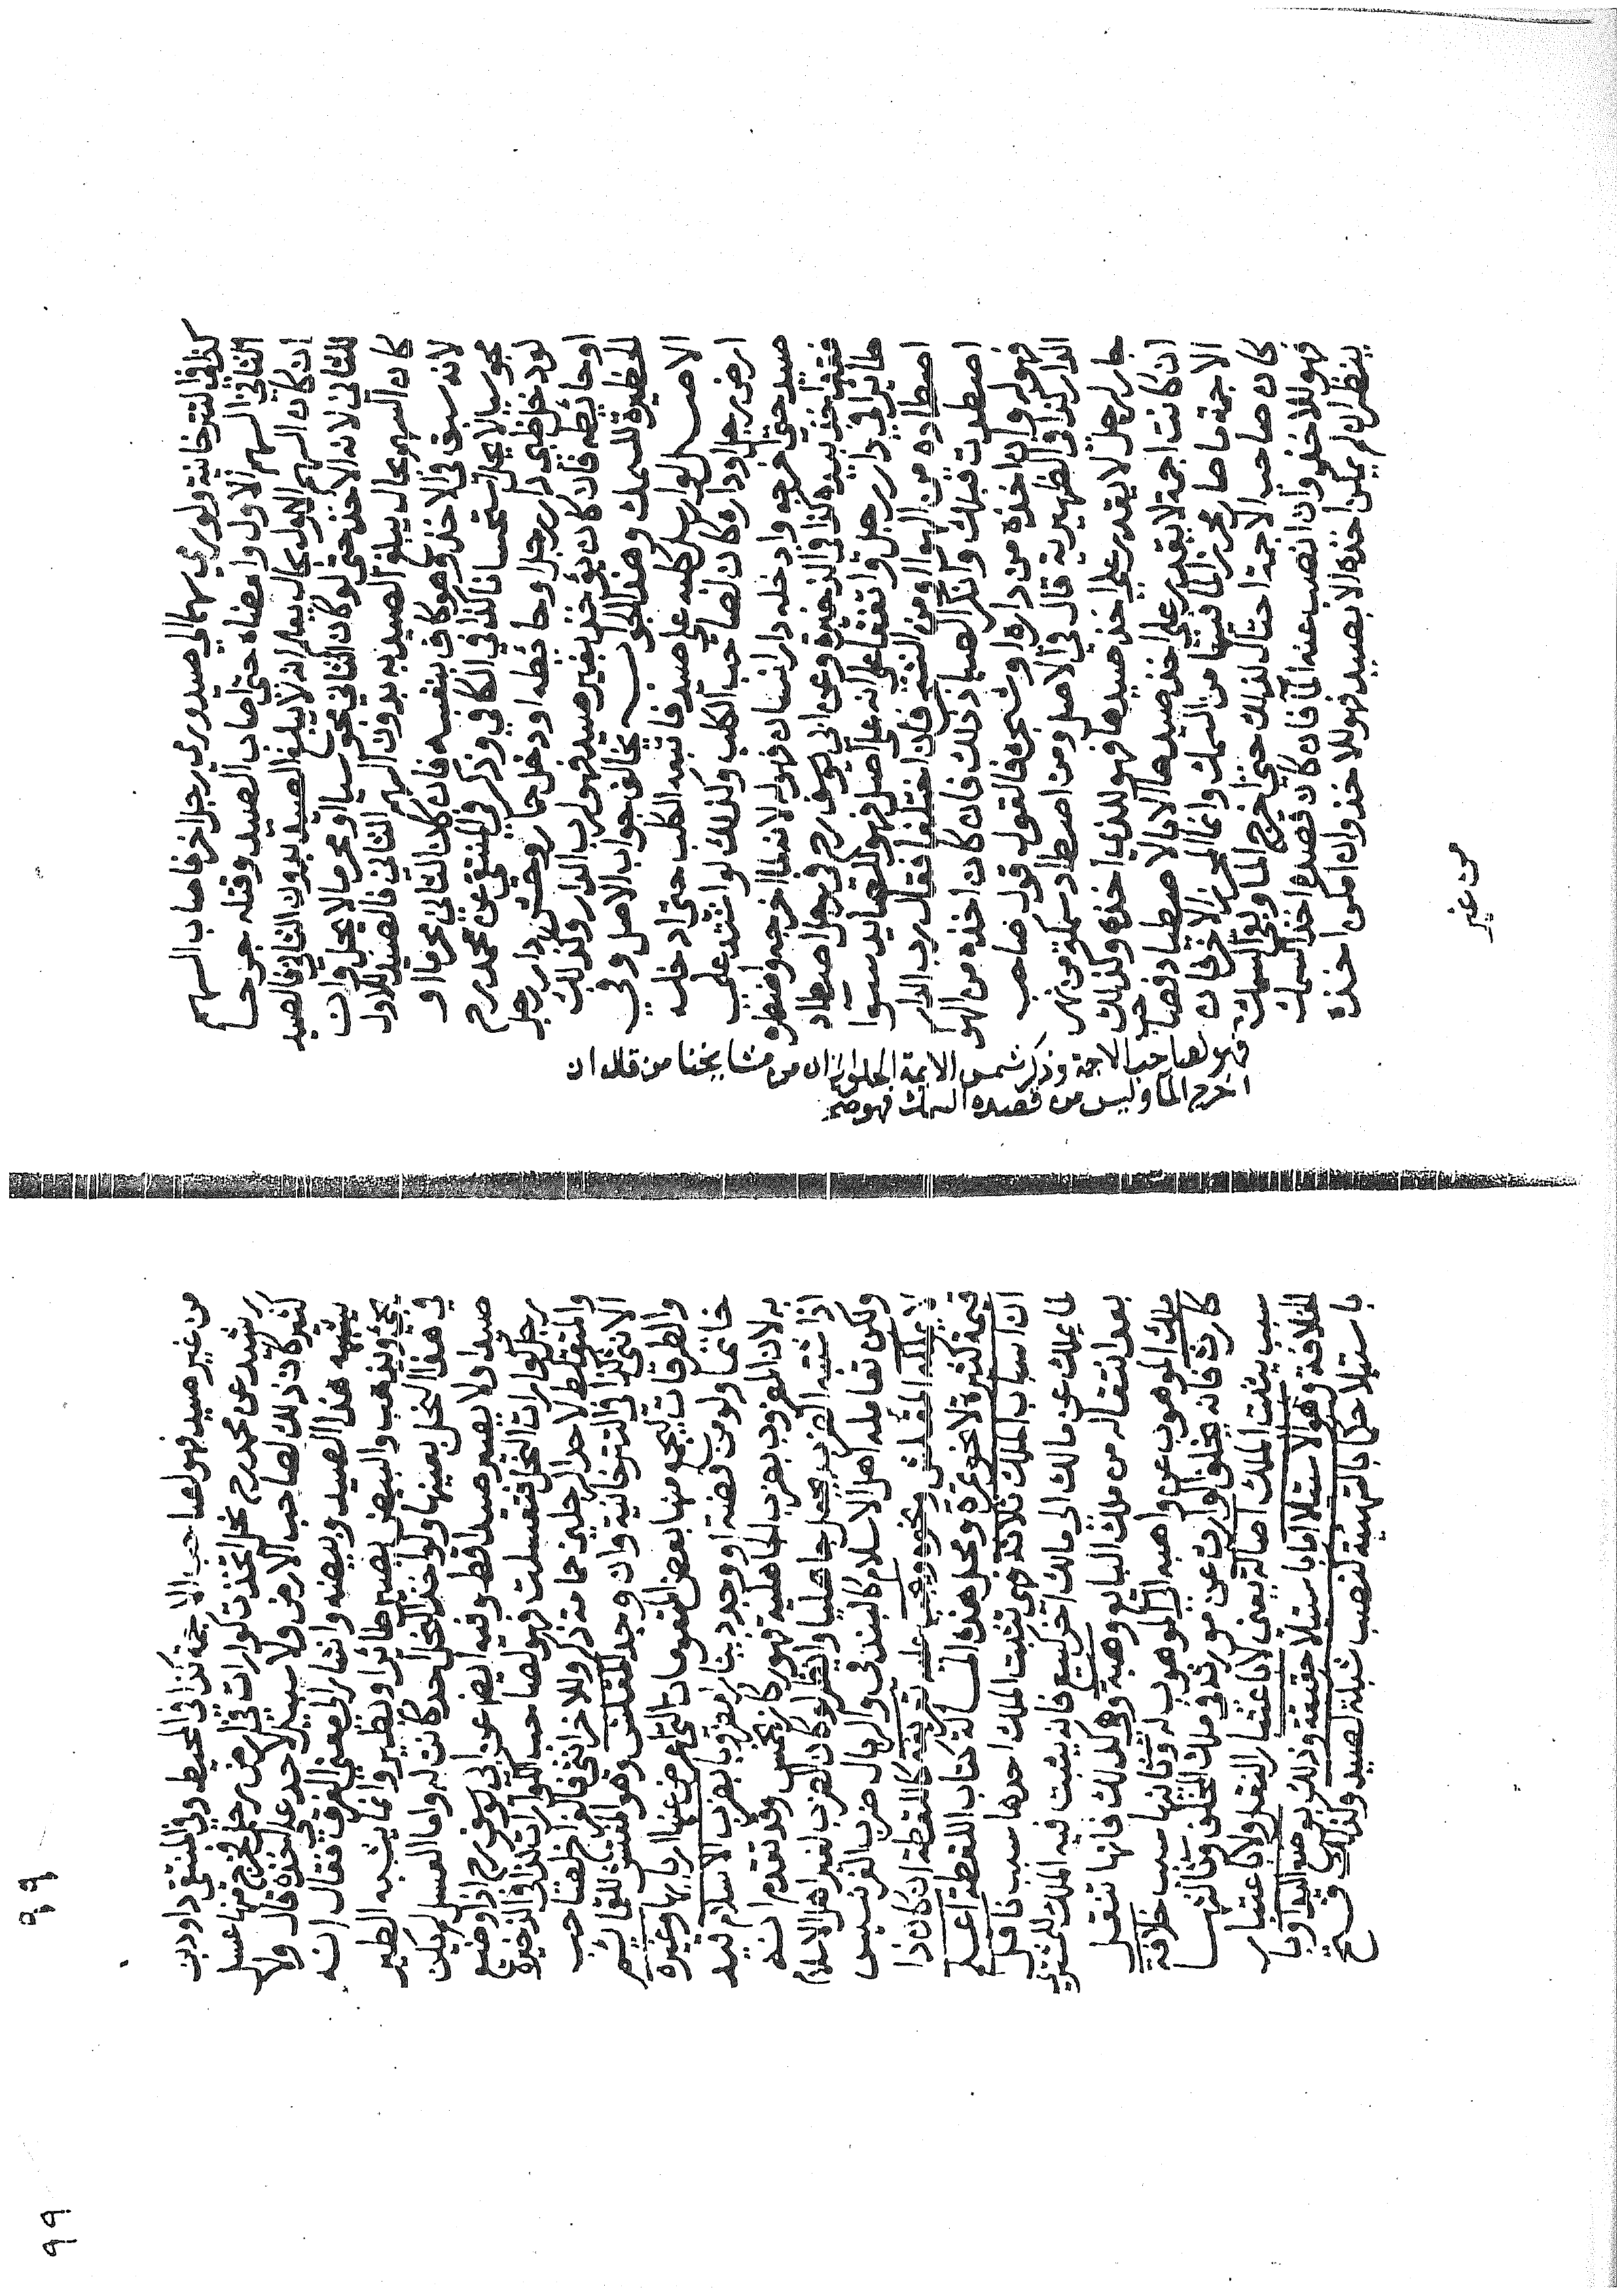 كذا في التترخانية ولو رمي سهما الي صيد ورمي رجل اخر فاصاب السهم
الثاني السهم الاول وامضاه حتي اصاب الصيد وقتله جرحا
ان كان السهم الاول بحال يعلم انه لا يبلغ الصيد بدون الثاني فالصيد
للثاني لانه الاخذ حتي لو كان الثاني مجوسيا او محرما لا يحل وان
كان السهم بحال يبلغ الصيد به بدون السهم الثاني فالصيد للاول
لانه سبق في الاخذ وهو كاف بنفسه فان كان الثاني محرما او
مجوسيا لا يحل استحسانا كذا في الكافي وذكر في المنتقي عن محمد رح
لو دخل ظبي دار رجل او حائطه او دخل حمار وحش دار رجل
او حائطه فان كان يؤخذ بغير صيد فهو لرب الدار وكذلك
الحظيرة للسمك وهذا الجواب يخالف جواب الاصل وفي
الاصل لو ارسل كلبه علي صيد فاتبعه الكلب حتي ادخله
ارض رجل او داره كان لصاحب الكلب وكذلك لو اشتد علي
صيد حتي اخرجه وادخله دار انسان فهو له لانه لما اخرجه واضطره
فثم اخذ بيده كذا في الذخيرة وعن ابي يوسف رح في رجل اصطاد
طائرا في دار رجل واتفقا علي انه علي اصل فهو للصايد سوا
اصطاده من الهوا او من الشجر فان اختلفا فقال رب الدار
اصطدت قبلك وانكر الصياد ذلك فان كان اخذه من الهوا
فهو له وان اخذه من داره او شجره فالقول قول صاحب
الدار كذا في الظهيرية قال في الاصل ومن اصطاد سمكة من نهر
جار لرجل لا يقدر علي اخذ صيدها فهو للذي اخذه وكذلك
ان كانت اجمة لا يقدر علي اخذ صيدها الا بالاصطياد فصاحب
الاجمة ما صار محرزا لما فيها من السمك وانما المحرز الاخذ فان
كان صاحب الاجمة احتال لذلك حتي اخرج الما وبقي السمك
فهو للاخذ وان نضب عنه الما فان كان قصده اخذ السمك
ينظر ان لم يمكن اخذه الا بصيد فهو للاخذ وان امكن اخذه
فهو لصاحب الاجمة وذكر شمس الايمة الحلواني ان من مشايخنا من قال ان
اخرج الما وليس من قصده السمك فهو
من غير
من غير صيد فهو لصاحب الاجمة كذا في المحيط وفي المنتقي داود بن
رشيد عن محمد رح نحل اتخذت كوارات في ارض رجل فخرج منها عسل
كثير كان ذلك لصاحب الارض ولا سبيل لاحد علي اخذه قال ولا
يشبه هذا الصيد وبيضه واشار الي معني الفرق فقال انه
يجئ ويذهب والبيض يصير طائرا ويطير وانما يشبه الطير
في هذا النحل بعينها ولو اخذ النحل احد كانت له واما العسل لم يكن
صيدا ولا يصير صيدا قط وفيه ايضا عن ابي يوسف رح اذا وضع
رجل كوارات النحل فتعسلت فهو لصاحب الكوارات كذا في الذخيرة
والمتقط لاحد الرجلين حمامة ذكر وللاخر انثي فالفرخ لصاحب
الانثي كذا في التترخانية وان وجد المقلش وهو المفتش للقمائم
والطرقات ليجمع منها بعض المتقومات التي اعرض عنها اربابها وغيره
خاتما ولو من فضة او وجد دينارا مضروبا بضرب الاسلام ليد
به لان المضروب بضرب الجاهلية فهو ركاز يخمس وقد تقدم انه
اذا اشتبه الضرب يجعل جاهليا وانظر لو كان الضرب لغير اهل الاسلام
ولكن تعامله اهل الاسلام كالبندقي والريال ضرب الفرنسيس
لا يملكه المقلش ونحوه ويجب عليه تعريفه كاللقطة ان كان ذا
قيمة كثيرة لا نحو تمرة ومحل هذه المسالة كتاب اللقطة اعلم
ان اسباب الملك ثلاثة فهي تثبت الملك احدها سبب ناقل
لما يملك عن مالك الي مالك اخر كبيع فانه يثبت فيه الملك للمشتري
بعد انتقاله من ملك البايع وهبة وهي كذلك فانها تنقل
ملك الموهوب عن واهبه الي الموهوب له وثانيها سبب خلافة
كارث فانه يخلف الوارث عن مورثه في ملك المتخلف وثالثها
سبب يثبت الملك اصالة يعني لا باعتبار النقل ولا باعتبار
الخلافة وهو الاستيلا اما باستيلا حقيقة وذلك بوضع اليد او با
باستيلا حكما بالتهيئة كنصب شبكة لصيد ولذلك قح
٩٩
٩٩